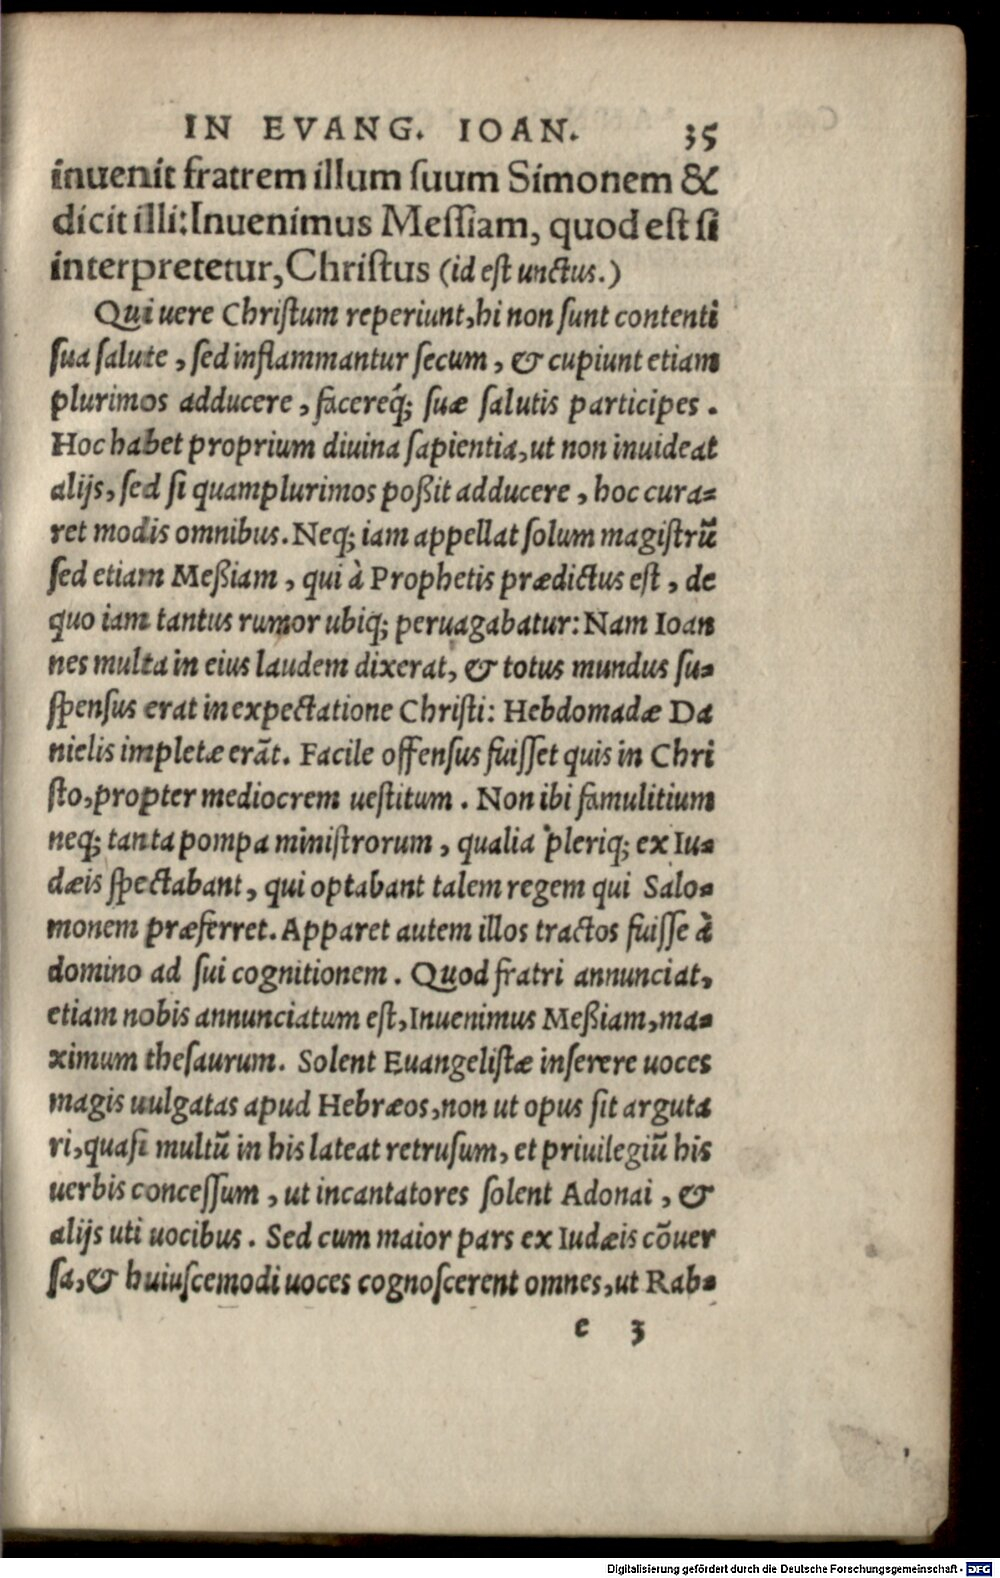 IN EVANG. IOAN. 35
inuenit fratrem illum suum Simonem &
dicit illi: Inuenimus Messiam, quod est si
interpretetur, Christus (id est unctus.)
Qui uere Christum reperiunt, hi non sunt contenti
sua salute, sed inflammantur secum, & cupiunt etiam
plurimos adducere, facereq́; suæ salutis participes.
Hoc habet proprium diuina sapientia, ut non inuideat
alijs, sed si quamplurimos poßit adducere, hoc cura-
ret modis omnibus. Neq; iam appellat solum magistrũ
sed etiam Meßiam, qui à Prophetis prædictus est, de
quo iam tantus rumor ubiq; peruagabatur: Nam Ioan
nes multa in eius laudem dixerat, & totus mundus su-
spensus erat in expectatione Christi: Hebdomadæ Da
nielis impletæ erãt. Facile offensus fuisset quis in Chri
sto, propter mediocrem uestitum. Non ibi famulitium
neq; tanta pompa ministrorum, qualia pleriq; ex Iu-
dæis spectabant, qui optabant talem regem qui Salo-
monem præferret. Apparet autem illos tractos fuisse à
domino ad sui cognitionem. Quod fratri annunciat,
etiam nobis annunciatum est, Inuenimus Meßiam, ma-
ximum thesaurum. Solent Euangelistæ inserere uoces
magis uulgatas apud Hebræos, non ut opus sit arguta
ri, quasi multũ in his lateat retrusum, et priuilegiũ his
uerbis concessum, ut incantatores solent Adonai, &
alijs uti uocibus. Sed cum maior pars ex Iudæis cõuer
sa, & huiuscemodi uoces cognoscerent omnes, ut Rab-
e 3
Digitalisierung gefördert durch die Deutsche Forschungsgemeinschaft - DFG